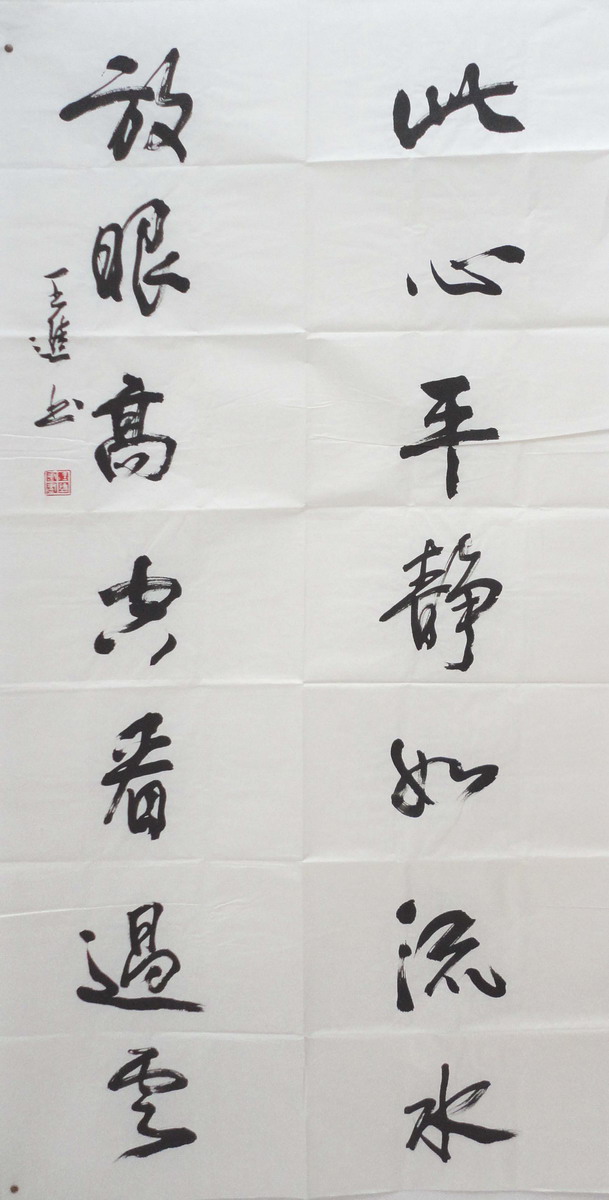 此心平静如流水
放眼高空看過雲
王進书